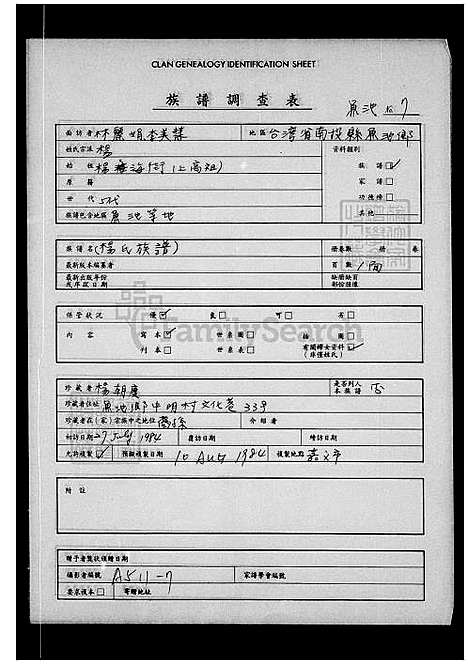 CLAN GENEALOGY IDENTIFICATION SHEET
族譜調查表
魚池 № 7
面訪者 林 娟 李美
地區 台灣省南投縣魚池鄉
姓氏宗派 楊
資料類別
始祖 楊 海 (上高祖)
族譜 ☑
原籍
家譜 □
世代 5代
功德榜 □
族譜包含地區 魚池等地
其他
族譜名 (楊氏族譜)
冊卷數 冊 卷
最新版本編纂者
頁數 1面
最新出版年份或年款日期
缺簡缺頁部份情況
保管狀況 優 ☑ 良 □ 可 □ 劣 □
內容 寫本 ☑ 世系圖 □ 插圖 □
刊本 □ 世系表 □ 有關譜未資料 ☑ (非僅姓氏)
FamilySearch
珍藏者 楊朝慶
是否列入本族譜 否
珍藏者住址 魚池鄉中明村文化巷33号
珍藏者在(家)宗族中之地位 裔孫 介紹者
初訪日期 27 July 1984 復訪日期 續訪日期
允許複製 ☑ 預擬複製日期 10 Aug 1984 複製地點 嘉义市
附註
贈予者獎狀頒贈日期
攝影者編號 A511-7 家譜學會編號
要求複本 □ 寄贈地址